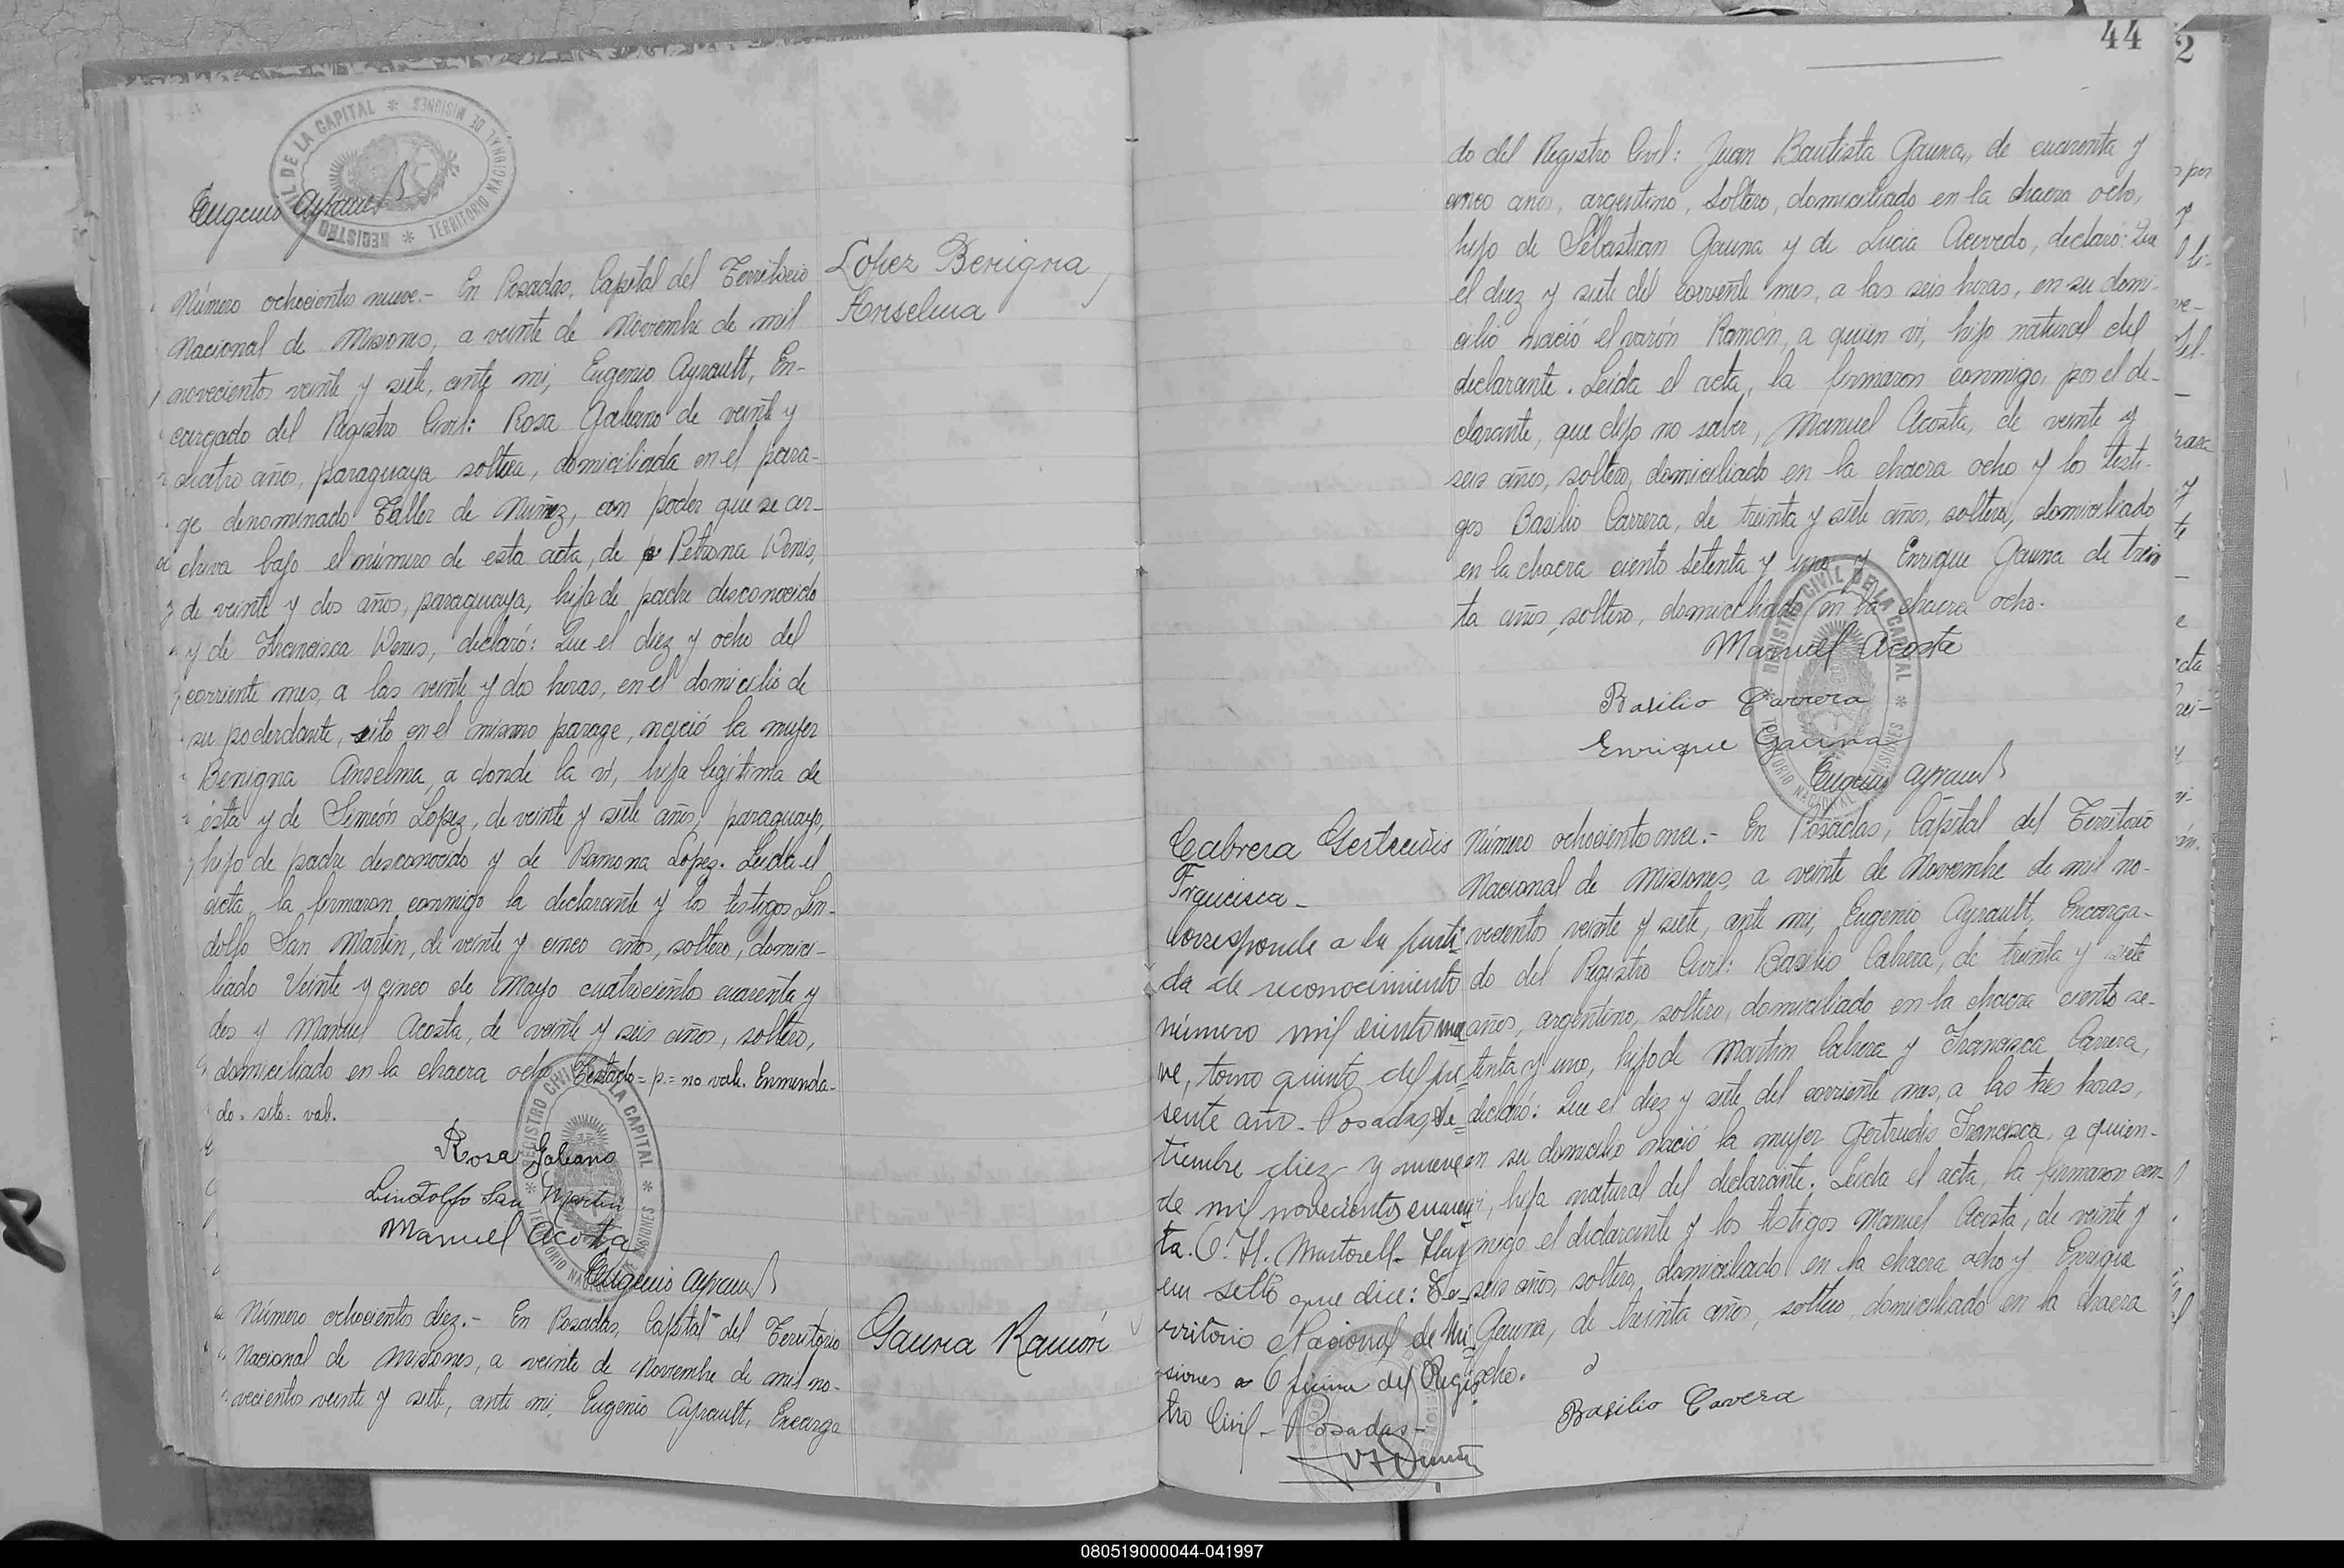 REGISTRO CIVIL DE LA CAPITAL * TERRITORIO NACIONAL DE MISIONES *
Eugenio Ayrault
Número ochocientos nueve.- En Posadas, Capital del Territorio
Nacional de Misiones, a veinte de Noviembre de mil
novecientos veinte y siete, ante mi, Eugenio Ayrault, En-
cargado del Registro Civil: Rosa Galeano de veinte y
cuatro años, paraguaya soltera, domiciliada en el para-
ge denominado Taller de Nuñez, con poder que se ar-
chiva bajo el número de esta acta, de p Petrona Denis,
de veinte y dos años, paraguaya, hija de padre desconocido
y de Francisca Denis, declaró: Que el diez y ocho del
corriente mes, a las veinte y dos horas, en el domicilio de
su poderdante, sito en el mismo parage, nació la mujer
Benigna Anselma, a donde la vi, hija legitima de
ésta y de Simeón Lopez, de veinte y siete años, paraguayo,
hijo de padre desconocido y de Ramona Lopez. Leida el
acta, la firmaron conmigo la declarante y los testigos Lin-
dolfo San Martin, de veinte y cinco años, soltero, domici-
liado Veinte y cinco de Mayo cuatrocientos cuarenta y
dos y Manuel Acosta, de veinte y seis años, soltero,
domiciliado en la chacra ocho Testado=p=no vale. Enmenda-
do=sito=vale.
Rosa Galeano
Lindolfo San Martin
Manuel Acosta
Eugenio Ayrault
REGISTRO CIVIL DE LA CAPITAL * TERRITORIO NACIONAL DE MISIONES *
Lopez Benigna
Anselma
Número ochocientos diez.- En Posadas, Capital del Territorio
Nacional de Misiones, a veinte de Noviembre de mil no-
vecientos veinte y siete, ante mi, Eugenio Ayrault, Encarga
Gauna Ramón
44
2
do del Registro Civil: Juan Bautista Gauna, de cuarenta y
cinco años, argentino, soltero, domiciliado en la chacra ocho,
hijo de Sebastian Gauna y de Lucia Acevedo, declaró: Que
el diez y siete del corriente mes, a las seis horas, en su domi-
cilio nació el varón Ramón, a quien vi, hijo natural del
declarante. Leida el acta, la firmaron conmigo, por el de-
clarante, que dijo no saber, Manuel Acosta, de veinte y
seis años, soltero, domiciliado en la chacra ocho y los testi-
gos Basilio Carrera, de treinta y siete años, soltero, domiciliado
en la chacra ciento setenta y uno y Enrique Gauna de trein
ta años, soltero, domiciliado en la chacra ocho.
Manuel Acosta
Basilio Carrera
Enrique Gauna
Eugenio Ayrault
REGISTRO CIVIL DE LA CAPITAL * TERRITORIO NACIONAL DE MISIONES *
Cabrera Gertrudis
Francisca-
Corresponde a la parti-
da de reconocimiento
número mil ciento nue
ve, tomo quinto del pre-
sente año- Posadas, Se-
tiembre diez y nueve
de mil novecientos cuaren
ta. O. H. Martorell- Hay
un sello que dice: Te-
rritorio Nacional de Mi
siones Oficina del Regis
tro Civil- Posadas-
Número ochociento once.- En Posadas, Capital del Territorio
Nacional de Misiones, a veinte de Noviembre de mil no-
vecientos veinte y siete, ante mi, Eugenio Ayrault, Encarga-
do del Registro Civil: Basilio Cabrera, de treinta y siete
años, argentino, soltero, domiciliado en la chacra ciento se-
tenta y uno, hijo de Martin Cabrera y Francisca Carrera,
declaró: Que el diez y siete del corriente mes, a las tres horas,
en su domicilio nació la mujer Gertrudis Francisca, a quien-
vi, hija natural del declarante. Leida el acta, la firmaron con-
migo el declarante y los testigos Manuel Acosta, de veinte y
seis años, soltero, domiciliado en la chacra ocho y Enrique
Gauna, de treinta años, soltero, domiciliado en la chacra
ocho.
Basilio Cavera
080519000044-041997